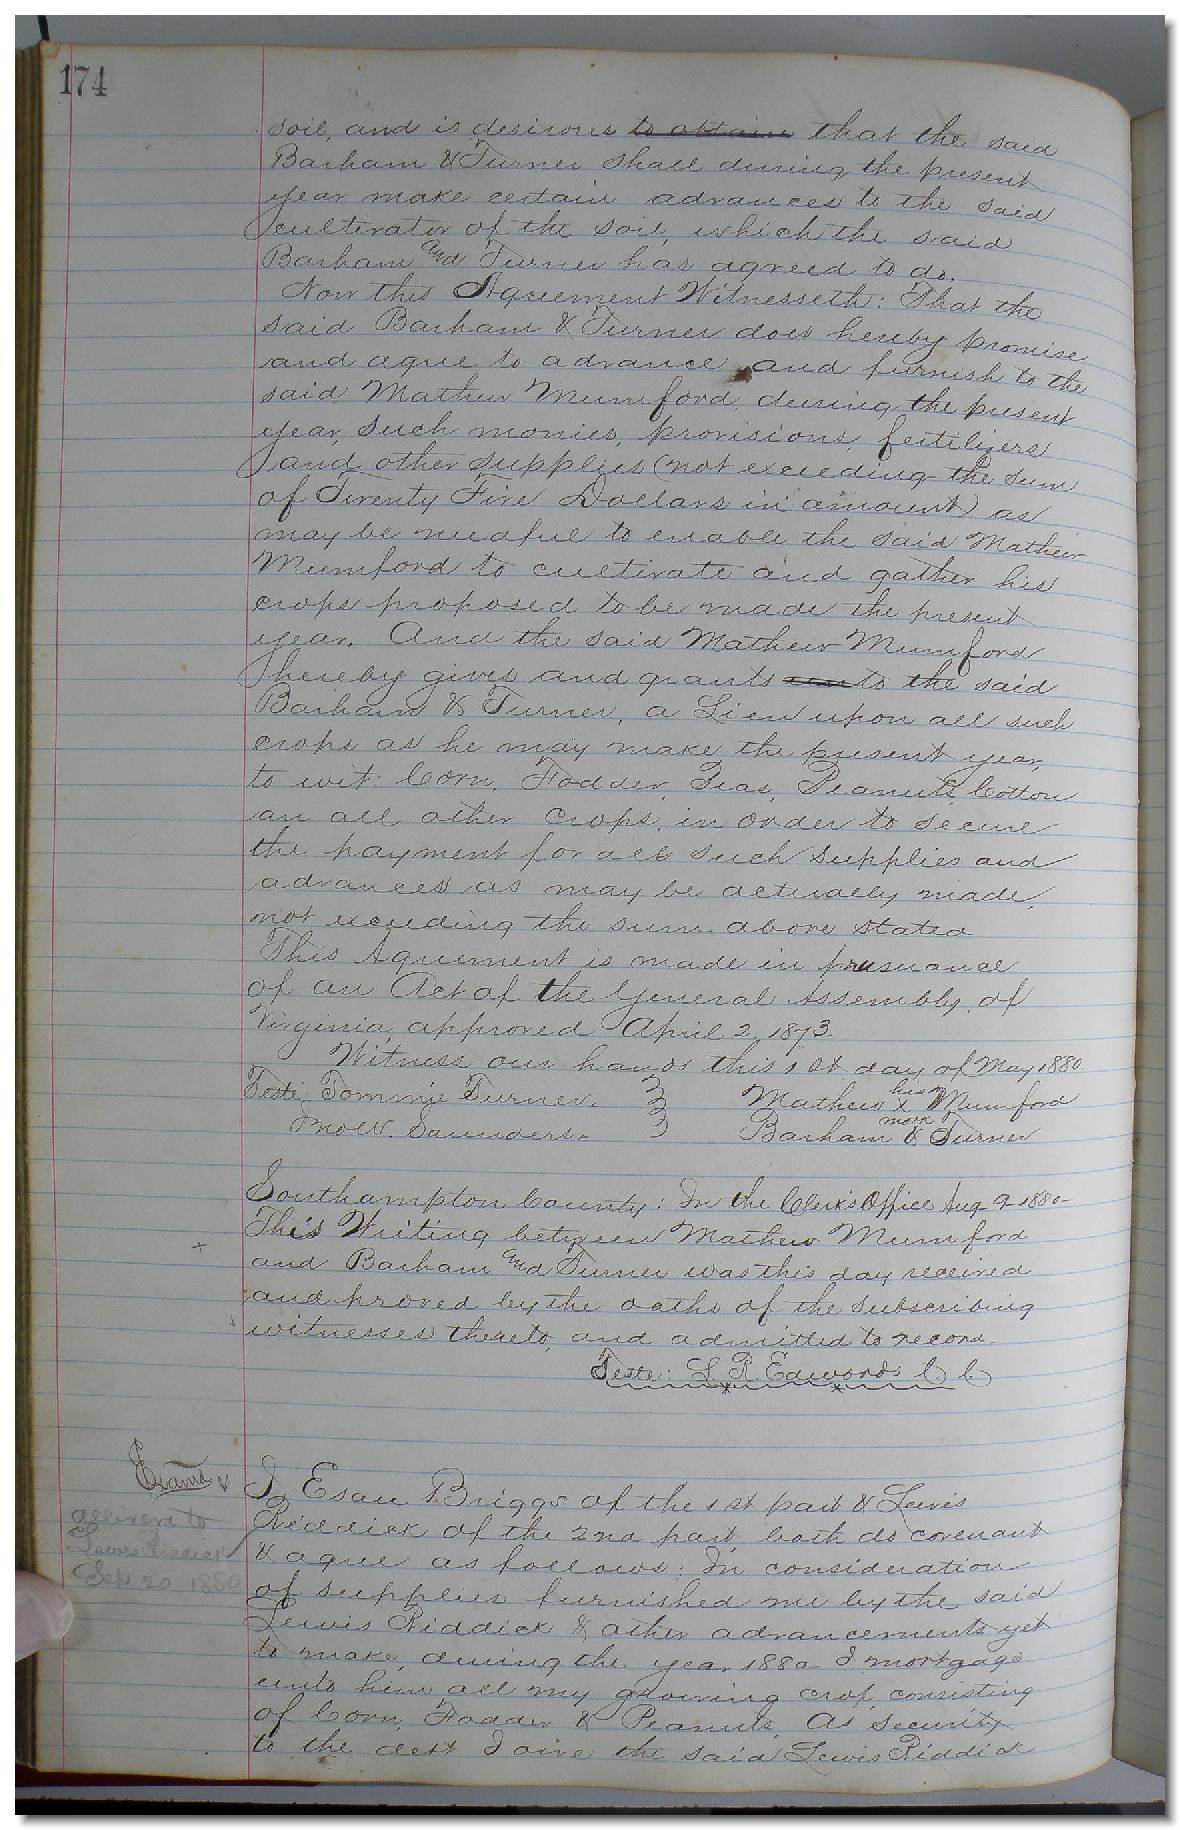 174
soil, and is desirous to obtain that the said
Barham & Turner shall during the present
year make certain advances to the said
cultivator of the soil, which the said
Barham and Turner has agreed to do.
Now this Agreement Witnesseth: That the
said Barham & Turner does hereby promise
and agree to advance and furnish to the
said Mathew Mumford, during the present
year, such monies, provisions, fertilizers
and other supplies (not exceeding the sum
of Twenty Five Dollars in amount) as
may be needful to enable the said Mathew
Mumford to cultivate and gather his
crops proposed to be made the present
year. And the said Mathew Mumford
hereby gives and grants to the said
Barham & Turner, a Lien upon all such
crops as he may make the present year,
to wit: Corn, Fodder, Peas, Peanuts, Cotton
an all other crops, in order to secure
the payment for all such supplies and
advances as may be actually made,
not exceeding the sum above stated
This Agreement is made in prusuance
of an Act of the General Assembly, of
Virginia, approved April 2, 1873.
Witness our hands this 1st day of May 1880
Teste: Tommie Turner. Mathew his x mark Mumford
Jno W. Saunders. Barham & Turner
Southampton County: In the Clerk's Office Aug 9 1880
This Writing between Mathew Mumford
and Barham and Turner was this day received
and proved by the oaths of the subscribing
witnesses thereto, and admitted to record.
Teste: L. R. Edwards C. C.
Examd
I Esau Briggs of the 1st part & Lewis
delivered to
Riddick of the 2nd part, both do covenant
Lewis Riddick
& agree as follows: In consideration
Sep 20 1880
of supplies furnished me by the said
Lewis Riddick & other advancements yet
to make, during the year 1880 I mortgage
unto him all my growing crop, consisting
of Corn, Fodder & Peanuts, As security
to the debt I owe the said Lewis Riddick